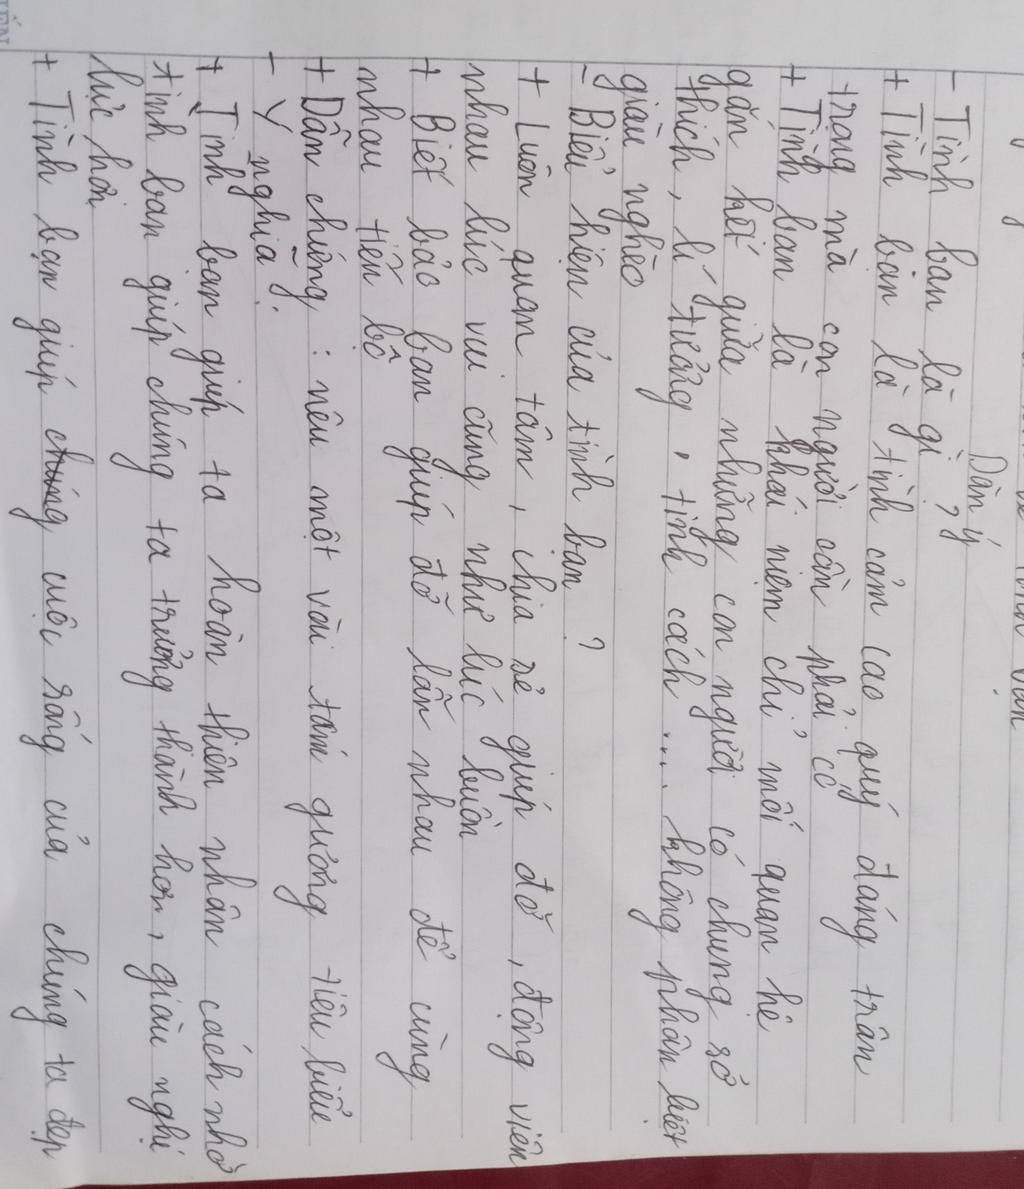 Dàn ý
- Tình bạn là gì?
+ Tình bạn là tình cảm cao quý đáng trân
trọng mà con người cần phải có
+ Tình bạn là khái niệm chỉ mối quan hệ
gắn kết giữa những con người có chung sở
thích, lí tưởng, tính cách .... không phân biệt
giàu nghèo
- Biểu hiện của tình bạn?
+ Luôn quan tâm, chia sẻ giúp đỡ, động viên
nhau lúc vui cũng như lúc buồn
+ Biết bảo ban giúp đỡ lẫn nhau để cùng
nhau tiến bộ
+ Dẫn chứng: nêu một vài tấm gương tiêu biểu
- Ý nghĩa:
+ Tình bạn giúp ta hoàn thiện nhân cách nhờ
tình bạn giúp chúng ta trưởng thành hơn, giàu nghị
lực hơn
+ Tình bạn giúp cuộc sống của chúng ta đẹp